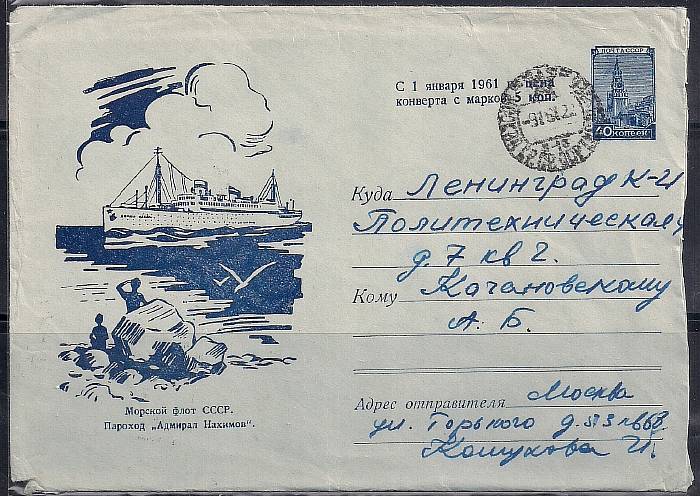 ПОЧТА СССР
40 копеек
С 1 января 1961 г. цена
конверта с маркой 5 коп.
Куда Ленинград К-21
Политехническая
д. 7 кв 2.
Кому Качановскому
А. Б.
Адрес отправителя Москва
ул. Горького д.
Кошукова И.
Морской флот СССР.
Пароход „Адмирал Нахимов“.